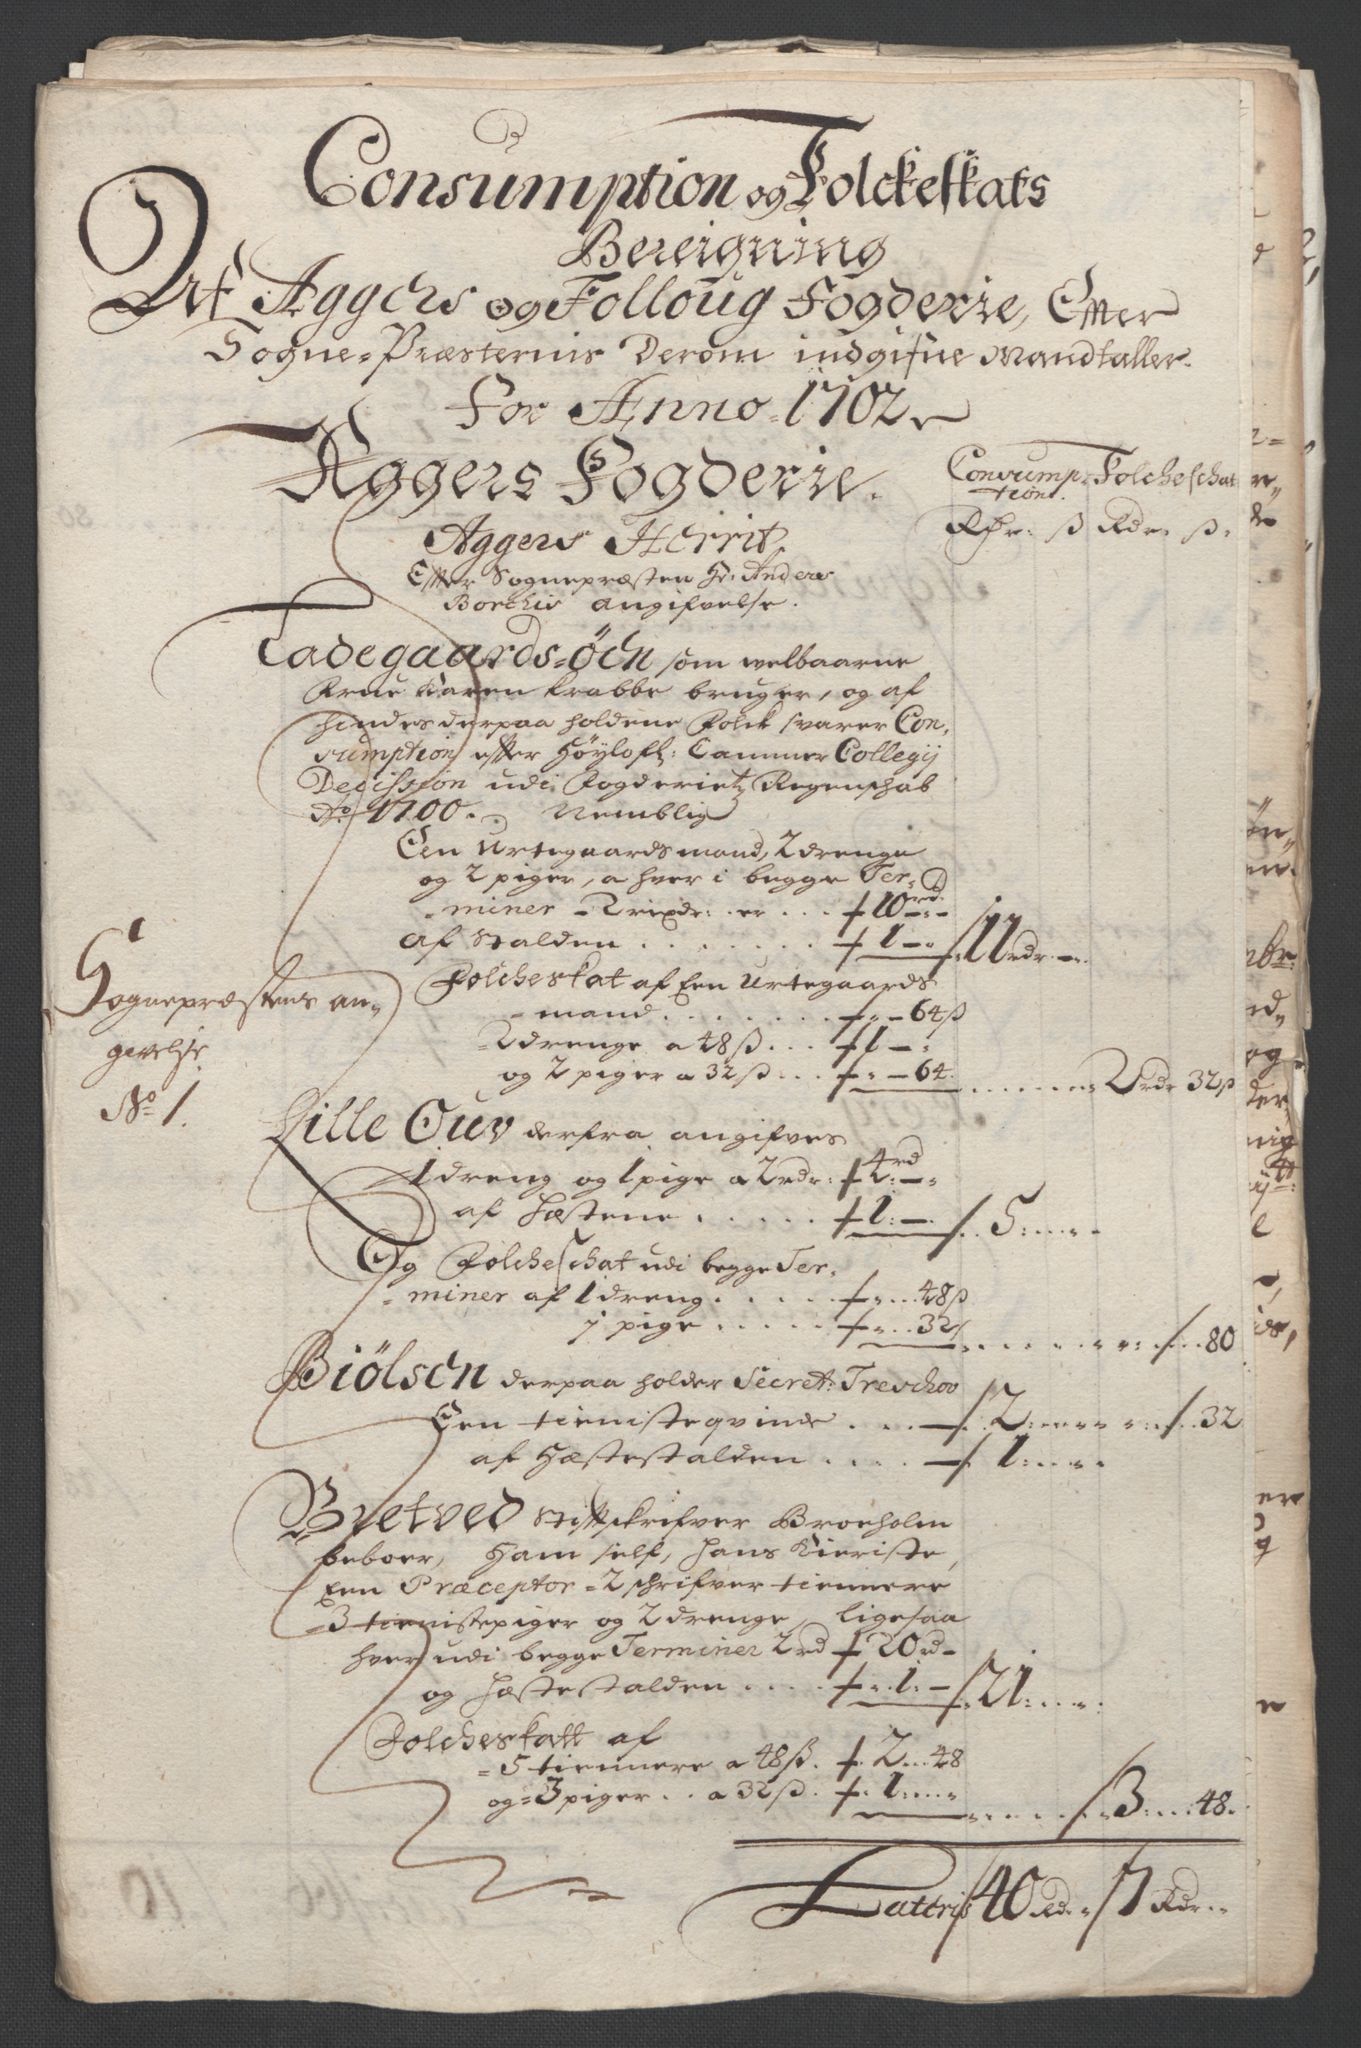 Consumption og Folckeskats
Bereigning
Af Aggers og Folloug Fogderie, Effter
Sogne-Præsternis Derom indgifne Mandtaller
For Anno 1702
Aggers Fogderie.
Consump- Folcheschat
tions.
Rdr: ß Rdr: ß:
Aggers Herrit
Effter Sognepræsten Hr: Anders
Borchis angifvelse.
Ladegaards-öen som welbaarne
Frue Karen Krabbe bruger, og af
hindes derpaa holdene Folck svarer Con-
sumption effter Höylofl: Cammer Collegij
Decission udi Fogderietz Regenschab
Ao 1700. Nemblig
Een Urtegaards mand, 2 drenge
og 2 piger, a hver i begge Ter-
miner 2 rixdr: er . . . 10 rd: -
af Stalden . . . . . . 1 - 11 rdr. -
Folcheskat af Een Urtegaards
mand . . . . . . . - 64 ß
2 drenge a 48 ß . . . 1 -
og 2 piger a 32 ß . . . - 64. . . . . . . 2 rdr 32 ß
Sognepræstens an-
givelse
No 1.
Lille Ouv derfra angifves
1 dreng og 1 pige a 2 rdr: 4 rd -
af Hæstene . . . . . 1: - 5: - -
Og Folcheschat udi begge Ter-
miner af 1 dreng . . . . . 48 ß
1 pige . . . . . 32 . . . . . . 80
Biölsen derpaa holder Secret: Treschov
Een tienisteqvinde . . . 2: - - . . 32
af Hæstestalden . . . . 1: - -
Bretved Stifftskrifver Broeholm
beboer, Ham self, Hans Kieriste,
Een Præceptor 2 schrifver tiennere
3 tienistepiger og 2 drenge, ligesaa
hver udi begge Terminer 2 rd 20 rd -
og Hæstestalden . . . . 1: - 21: - -
Folcheskatt af
5 tiennere a 48 ß. 2 . . 48
og 3 piger . . a 32 ß. 1: - - . . . . 3 . . . 48.
Lateris 40 Rd: 7 Rdr: